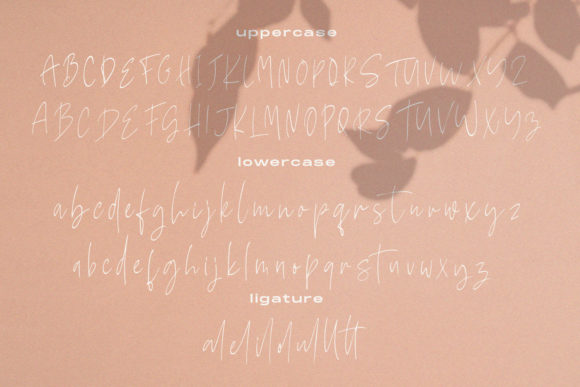 uppercase
ABCDEFGHIJKLMNOPQRSTUVWXYZ
ABCDEFGHIJKLMNOPQRSTUVWXYZ
lowercase
abcdefghijklmnopqrstuvwxyz
abcdefghijklmnopqrstuvwxyz
ligature